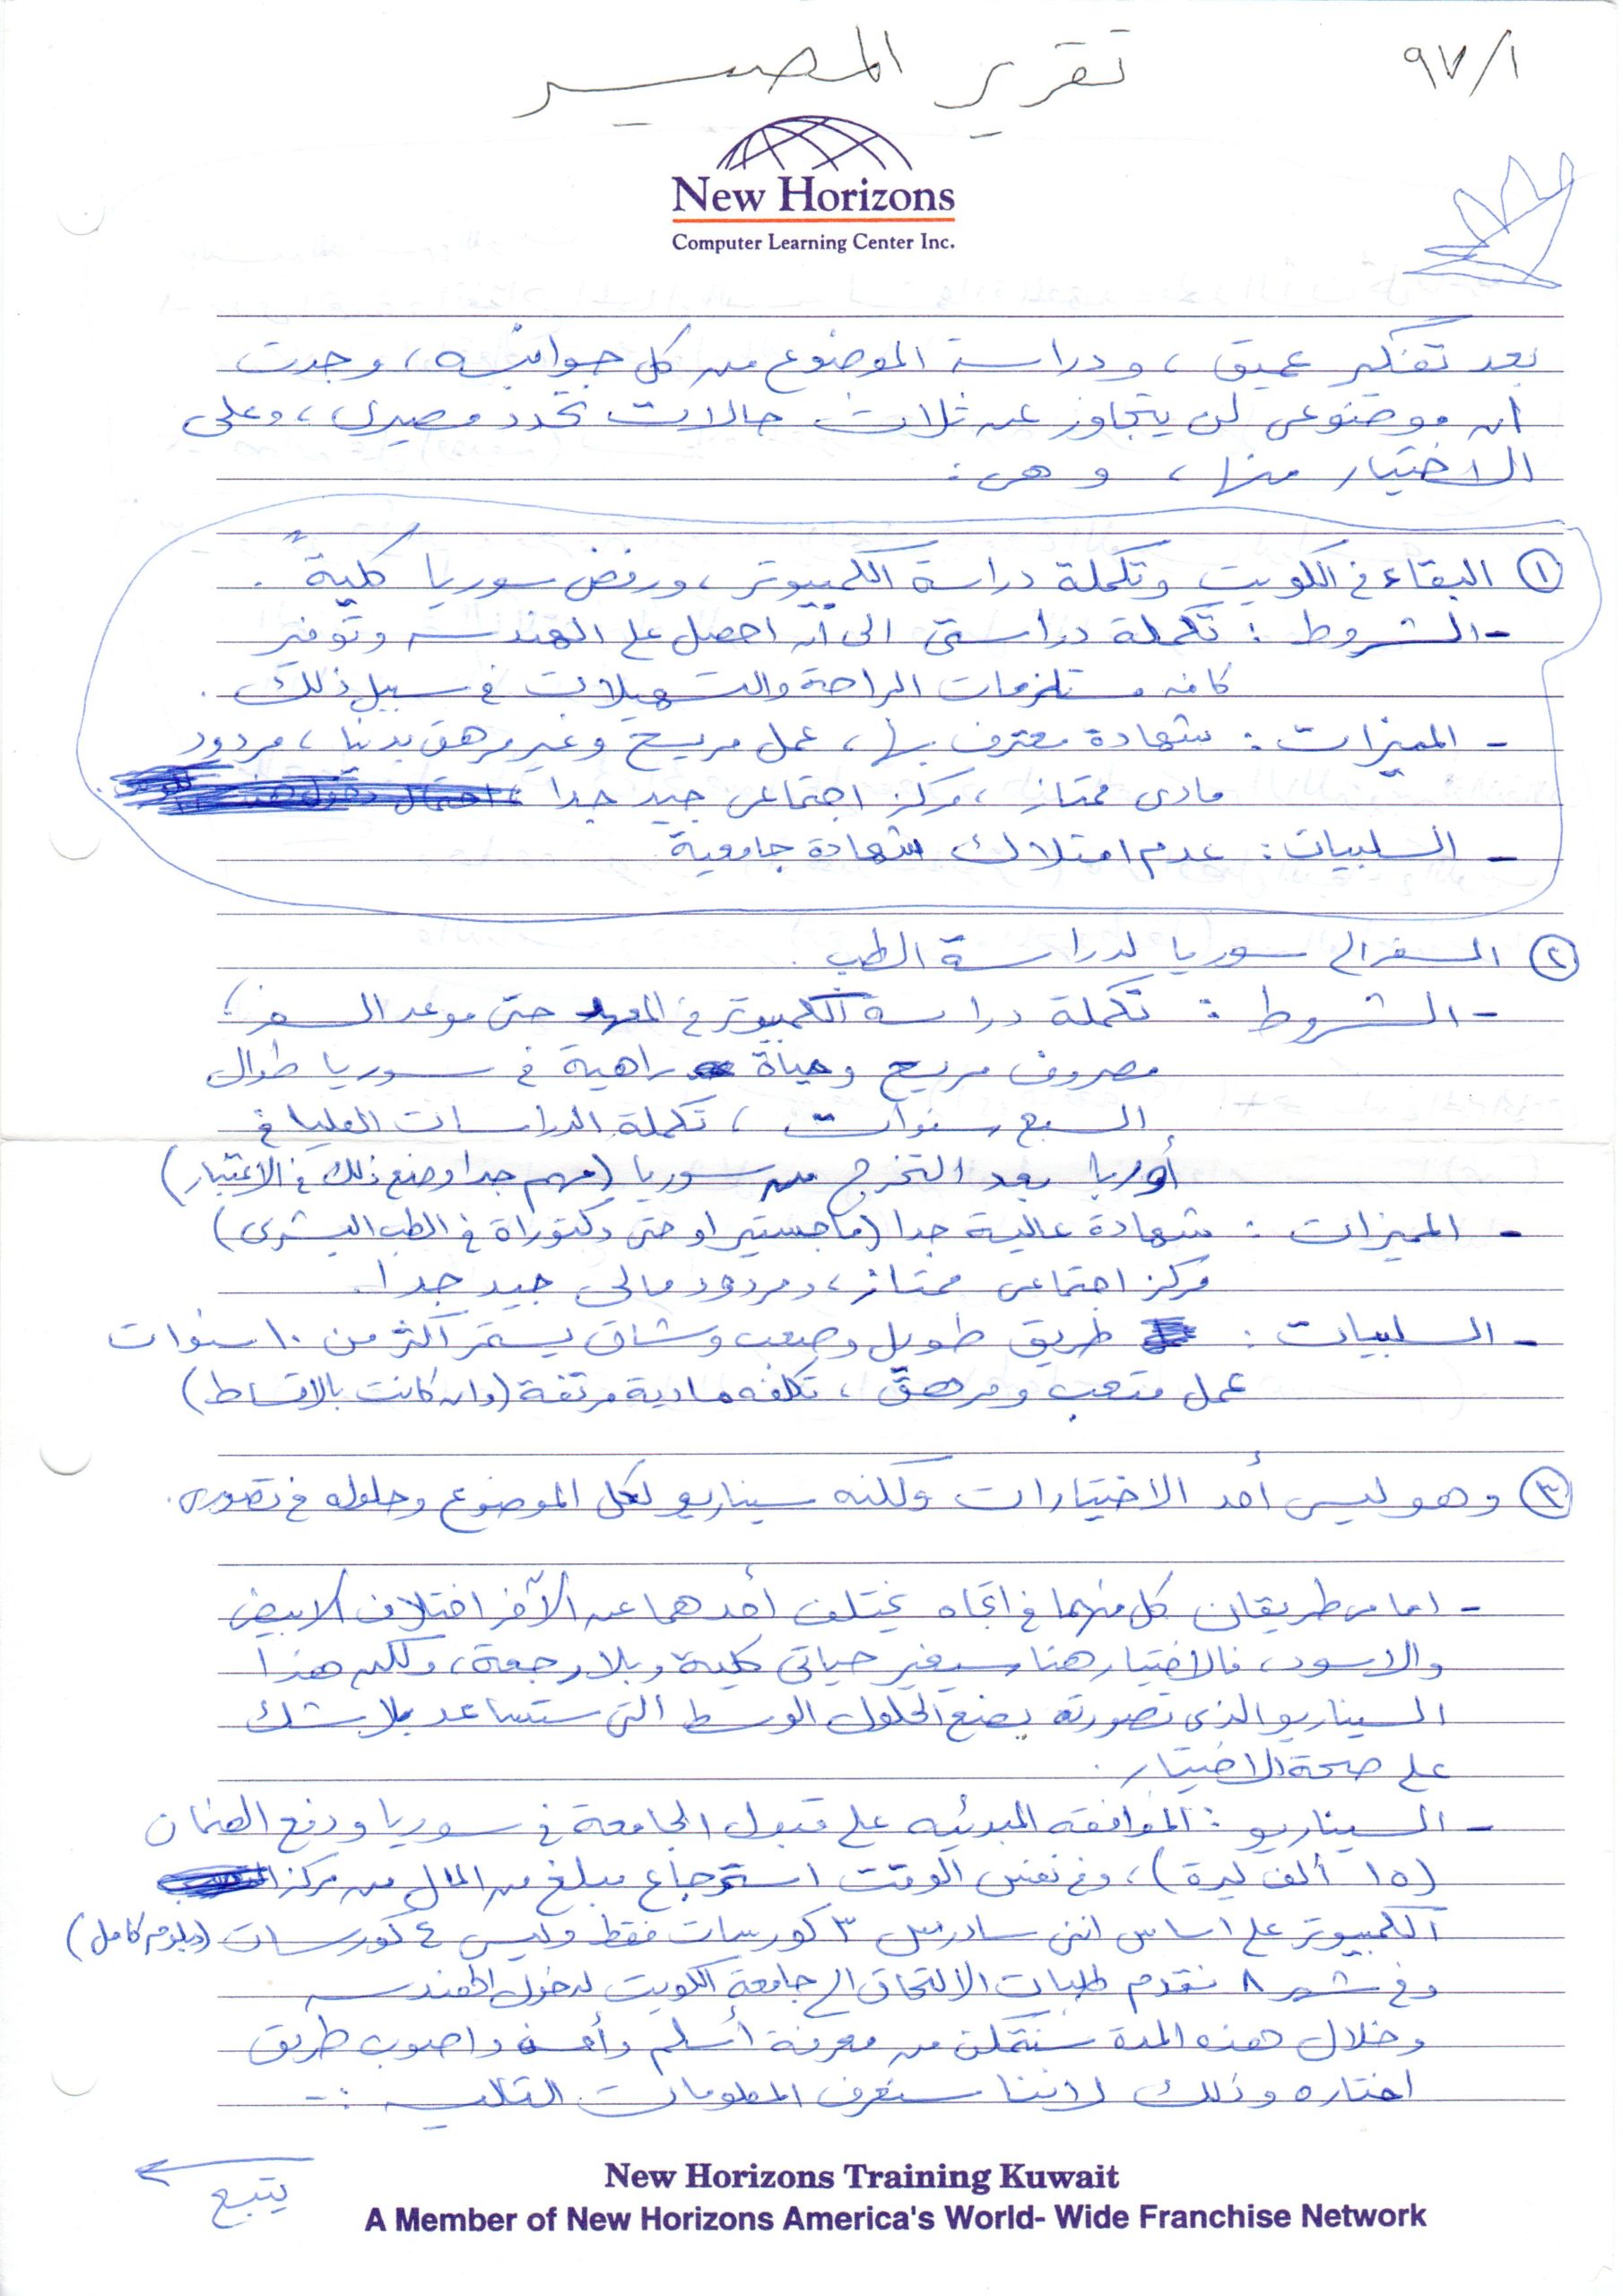 ٩٧/١
تقرير المصير
New Horizons
Computer Learning Center Inc.
بعد تفكير عميق، ودراسة الموضوع من كل جوانبه، وجدت
ان موضوعي لن يتجاوز عن ثلاث حالات تحدد مصيري، وعلي
الاختيار منها، وهي:
① البقاء في الكويت وتكملة دراسة الكمبيوتر، ورفض سوريا كليةً.
- الشروط: تكملة دراستي الى أن احصل على الهندسة وتوفير
كافه مستلزمات الراحة والتسهيلات في سبيل ذلك.
- المميزات: شهادة معترف بها، عمل مريح وغير مرهق بدنيا، مردود
مادي ممتاز، مركز اجتماعي جيد جدا
- السلبيات: عدم امتلاك شهادة جامعية
② السفر الى سوريا لدراسة الطب.
- الشروط: تكملة دراسة الكمبيوتر في المعهد حتى موعد السفر،
مصروف مريح وحياة راهية في سوريا طوال
السبع سنوات، تكملة الدراسات العليا في
أوربا بعد التخرج من سوريا (مهم جدا وضع ذلك في الاعتبار)
- المميزات: شهادة عالية جدا (ماجستير او حتى دكتوراة في الطب البشري)
مركز اجتماعي ممتاز، ومردود مالي جيد جدا.
- السلبيات: طريق طويل وصعب وشاق يستمر أكثر من ١٠ سنوات
عمل متعب ومرهق، تكلفه مادية مرتفة (وان كانت بالاقساط)
③ وهو ليس أحد الاختيارات ولكنه سيناريو لكل الموضوع وحلوله في تصوري.
- امامي طريقان كل منهما في اتجاه يختلف أحدهما عن الآخر اختلاف الابيض
والاسود، فالاختيار هنا سيغير حياتي كلية وبلا رجعة، ولكن هذا
السيناريو الذي تصورته يضع الحلول الوسط التي ستساعد بلا شك
على صحة الاختيار.
- السيناريو: الموافقه المبدئيه على قبول الجامعة في سوريا ودفع الضمان
(١٥ ألف ليرة)، وفي نفس الوقت استرجاع مبلغ من المال من مركز
الكمبيوتر على اساس انني سادرس ٣ كورسات فقط وليس ٤ كورسات (دبلوم كامل)
وفي شهر ٨ نقدم طلبات الالتحاق الى جامعة الكويت لدخول الهندسه
وخلال هذه المدة سنتمكن من معرفة أسلم وأحسن واصوب طريق
اختاره وذلك لاننا سنعرف المعلومات التاليه :-
يتبع
New Horizons Training Kuwait
A Member of New Horizons America's World- Wide Franchise Network